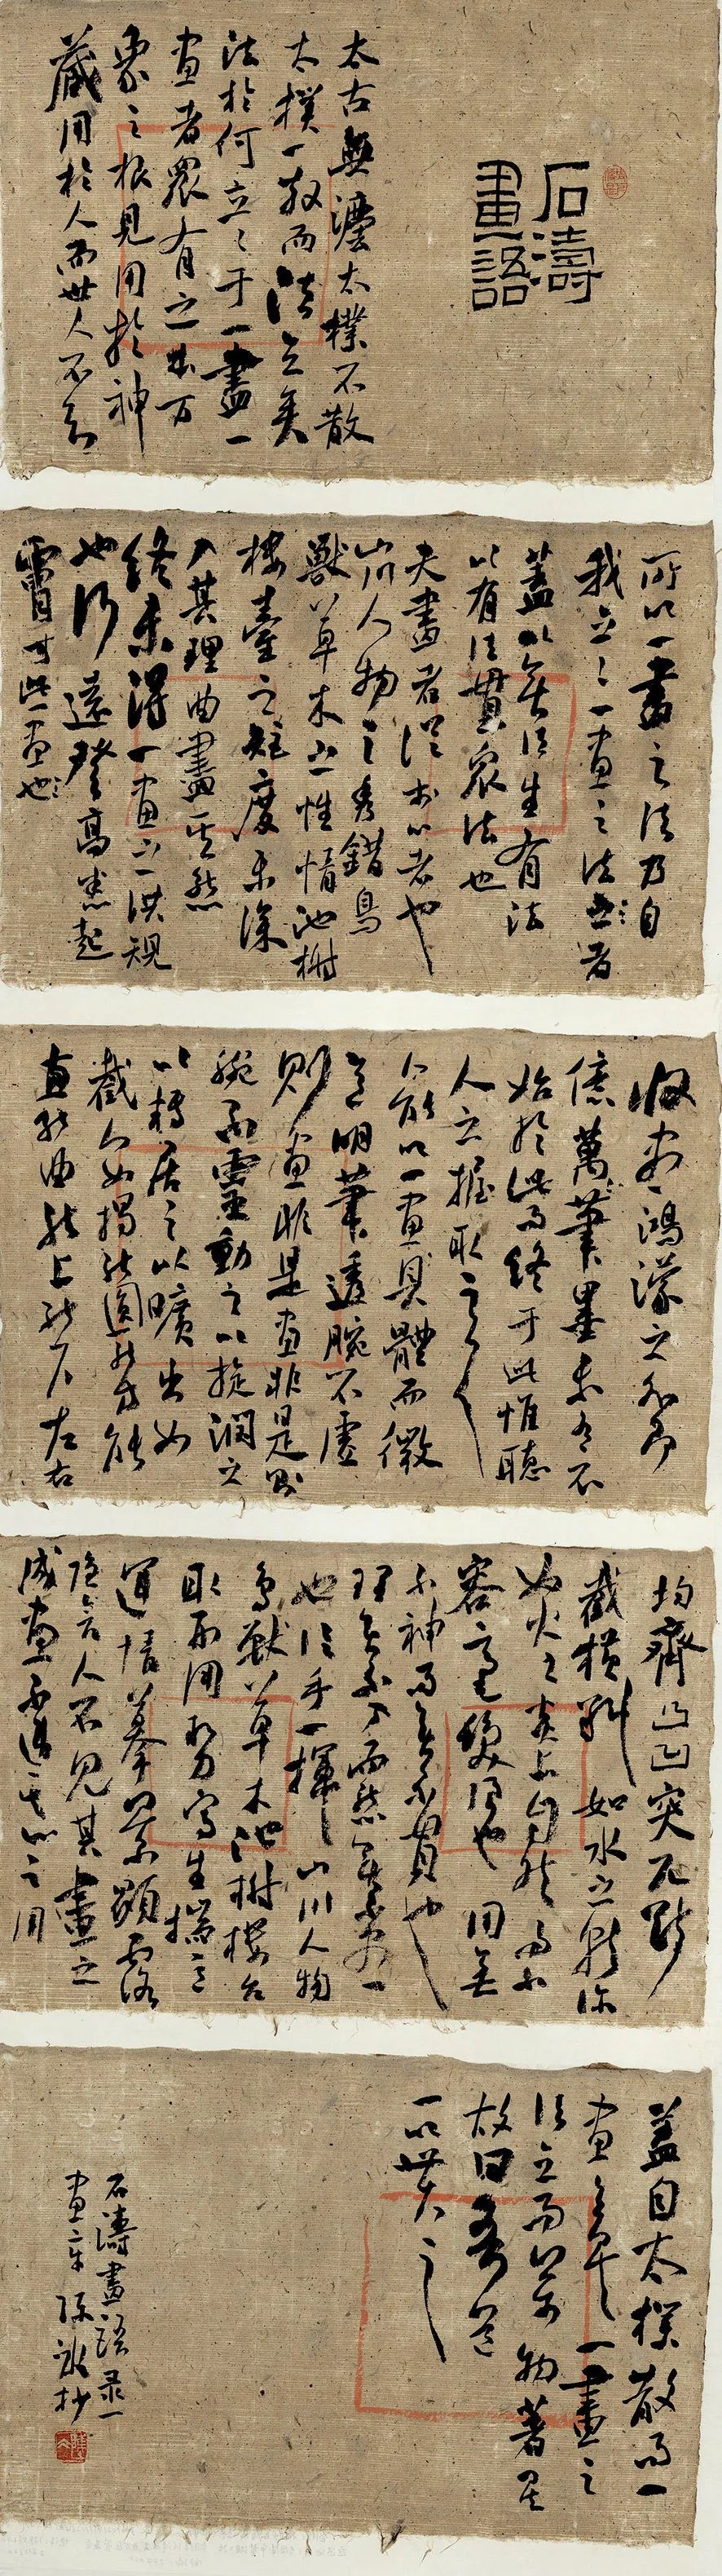 石濤
畫語
太古無法太樸不散
太樸一散而法立矣
法於何立立于一畫一
畫者眾有之本万
象之根見用於神
藏用於人而世人不知
所以一畫之法乃自
我立立一畫之法者
蓋以無法生有法
以有法貫眾法也
夫畫者從於心者也
山川人物之秀錯鳥
獸草木之性情池榭
樓臺之矩度未深
入其理曲盡其態
終未得一畫之洪規
也行遠登高悉起
膚寸此一畫也
收盡鴻濛之外即
億萬筆墨未有不
始於此而終于此惟聽
人之握取之
人能以一畫具體而微
意明筆透腕不虛
則畫非是畫非是則
腕不靈動之以旋潤之
以轉居之以曠出如
截入如揭能圓能方能
直能曲能上能下左右
均齊凸凹突兀斷
截橫斜如水之就深
如火之炎上自然而不
容毫髮強也用無
不神而法無不貫也
理無不入而態無不盡一
也信手一揮山川人物
鳥獸草木池榭樓台
取形用勢寫生揣意
運情摹景顯露
隱含人不見其畫之
成畫不違其心之用
蓋自太樸散而一
畫之法立一畫之
法立而萬物著矣
故曰吾道
一以貫之
石濤畫語录一
畫章 抄